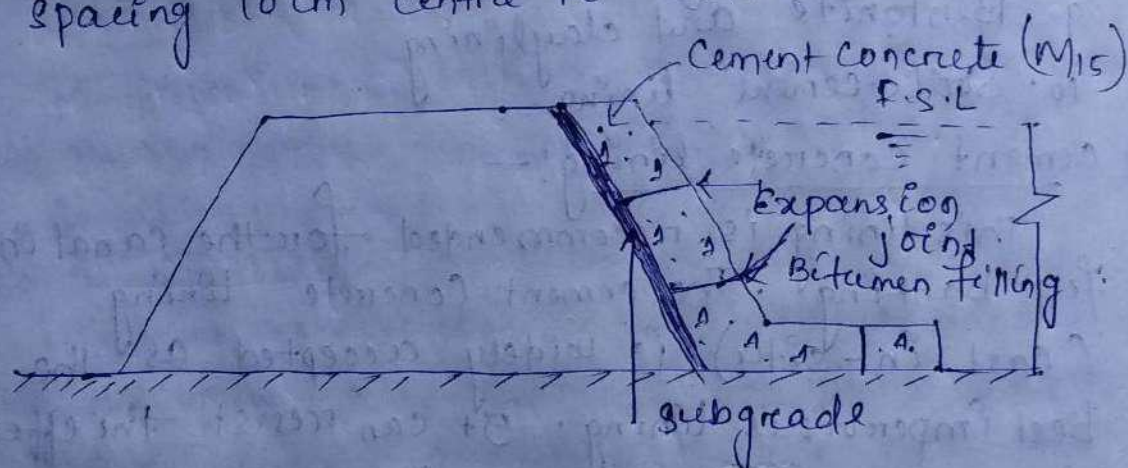 spacing 10cm centre
Cement concrete (M15)
F.S.L
Expansion
joind
Bitumen filling
subgrade